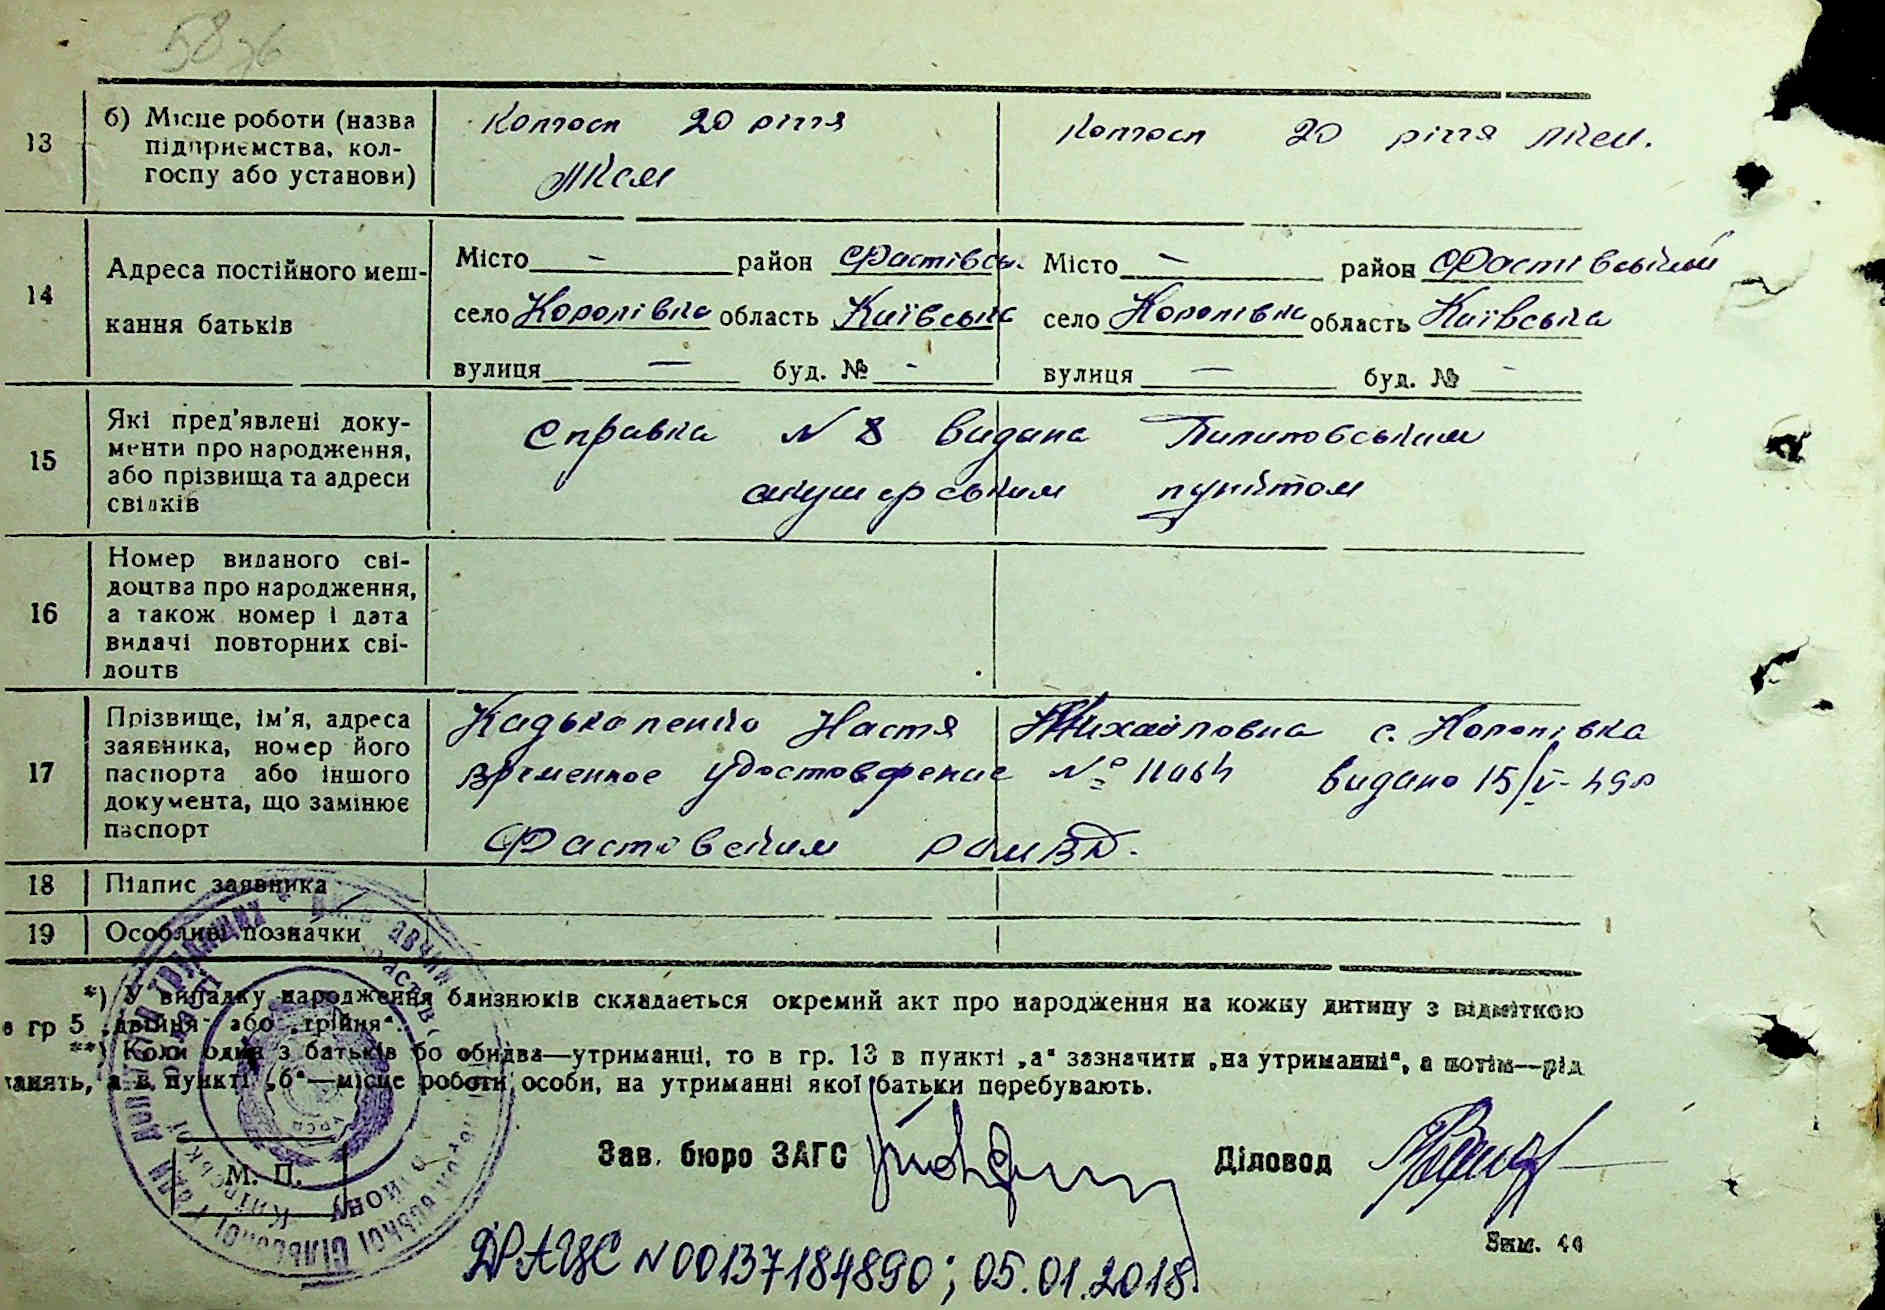 58 зв
13 б) Місце роботи (назва підприємства, колгоспу або установи) Колгосп 20 річчя ЛКСМ Колгосп 20 річчя ЛКСМ.
14 Адреса постійного мешкання батьків
Місто — район Фастівськ. Місто — район Фастівський
село Королівка область Київська село Королівка область Київська
вулиця — буд. № - вулиця — буд. № -
15 Які пред'явлені документи про народження, або прізвища та адреси свідків
Справка N 8 видана Пилиповським
акушерським пунктом
16 Номер виданого свідоцтва про народження, а також номер і дата видачі повторних свідоцтв
17 Прізвище, ім'я, адреса заявника, номер його паспорта або іншого документа, що замінює паспорт
Настя Михайловна с. Королівка
временное удостоверение № видано 15/V-49р
Фастовским РОМВД.
18 Підпис заявника
19 Особливі позначки
*) У випадку народження близнюків складається окремий акт про народження на кожну дитину з відміткою
в гр 5 „двійня" або „трійня".
**) Коли один з батьків бо обидва—утриманці, то в гр. 13 в пункті „а" зазначити „на утриманні", а потім—рід
занять, а в пункті „б"—місце роботи особи, на утриманні якої батьки перебувають.
Зав. бюро ЗАГС Діловод
М. П.
Зим. 40
ДРАЦС N 00137184890; 05.01.2018.